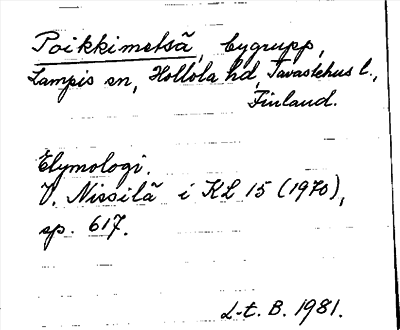 Poikkimetsä, bygrupp,
Lampis sn, Hollola hd, Tavastehus l.,
Finland.
Etymologi.
V. Nissilä i KL 15 (1970),
sp. 617.
L-t. B. 1981.